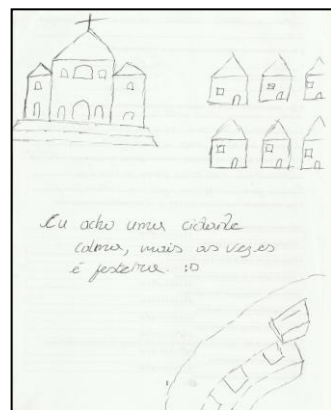 Eu acho uma cidade
calma, mais as vezes
é festeira. :D